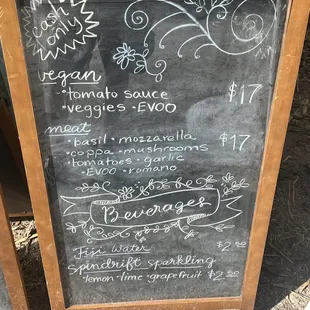 cash only
$17
vegan
·tomato sauce
·veggies ·EVOO $17
meat
·basil ·mozzarella
·coppa ·mushrooms $17
·tomatoes ·garlic
·EVOO ·romano
Beverages
Fiji Water $2.00
Spindrift sparkling
lemon·lime·grapefruit $2.00